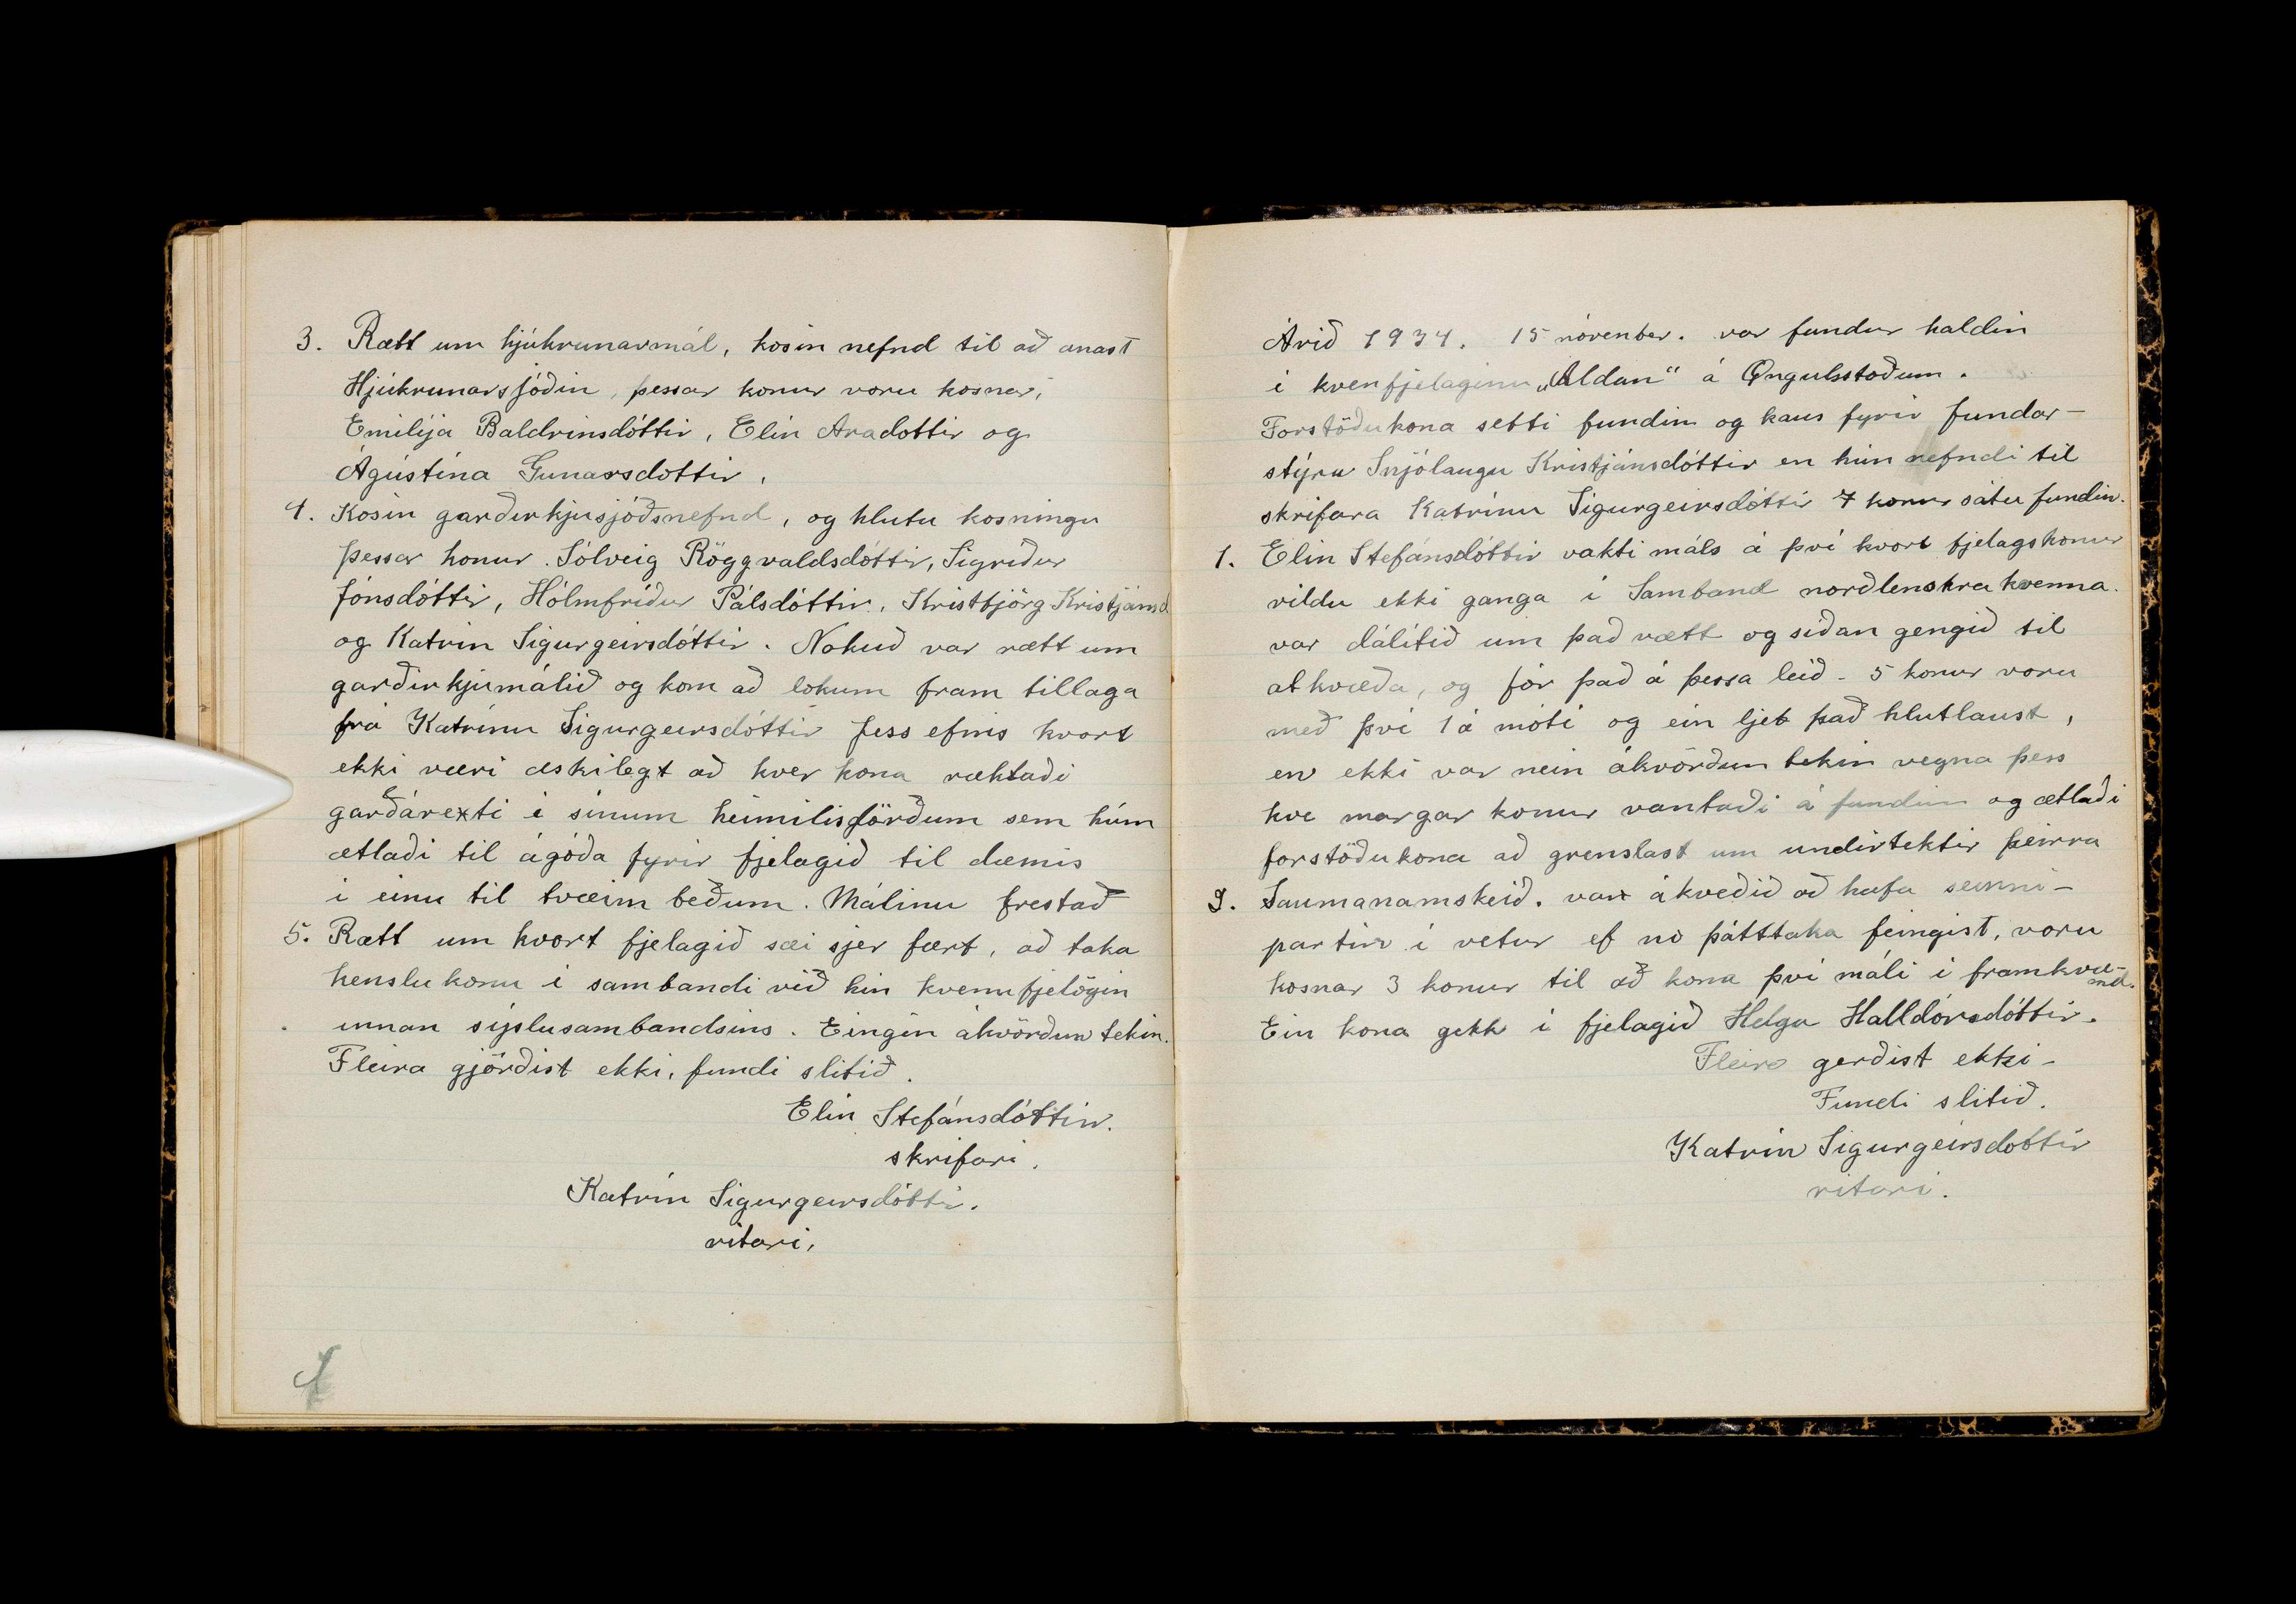 3. Rætt um hjúkrunarmál, kosin nefnd til að anast
Hjúkrunarsjóðin, þessar konur voru kosnar,
Emilija Baldvinsdóttir, Elín Aradottir og
Ágústína Gunarsdottir,
4. Kosin garðirkjusjóðsnefnd, og hlutu kosningu
þessar konur. Sólveig Röggvaldsdóttir, Sigríður
Jónsdóttir, Hólmfríður Pálsdóttir, Kristbjörg Kristjánsd
og Katrín Sigurgeirsdóttir. Nokuð var rætt um
garðirkjumálið og kom að lokum fram tillaga
frá Katrínu Sigurgeirsdóttir þess efnis hvort
ekki væri æskilegt að hver kona ræktaði
garðárexti í sínum heimilisjörðum sem hún
ætlaði til ágóða fyrir fjelagið til dæmis
í einu til tveim beðum. Málinu frestað
5. Rætt um hvort fjelagið sæi sjer fært, að taka
kenslukonu í sambandi við hin kvennfjelögin
innan sýslusambandsins. Eingin ákvörðun tekin.
Fleira gjörðist ekki, fundi slitið.
Elín Stefánsdóttir.
skrifari.
Katrín Sigurgeirsdóttir.
ritari,
Árið 1934. 15 nóvenber. var fundur haldin
í kvenfjelaginu „Aldan“ á Öngulsstoðum.
Forstöðukona setti fundin og kaus fyrir fundar-
stýru Snjólaugu Kristjánsdóttir en hún nefndi til
skrifara Katrínu Sigurgeirsdóttir 7 konur sátu fundin.
1. Elín Stefánsdóttir vakti máls á því hvort fjelagskonur
vildu ekki ganga í Samband norðlenskra kvenna.
var dálítið um það rætt og síðan gengið til
atkvæða, og fór það á þessa leið - 5 konur voru
með því 1 á móti og ein ljet það hlutlaust,
en ekki var nein ákvörðun tekin vegna þess
hve margar konur vantaði á fundin og ætlaði
forstöðukona að grenslast um undirtektir þeirra
2. Saumanamskeið. var ákveðið að hafa seinni-
partin í vetur ef nó þátttaka feingist, voru
kosnar 3 konur til að koma því máli í framkvæ-
md.
Ein kona gekk í fjelagið Helga Halldórsdóttir.
Fleira gerðist ekki -
Fundi slitið.
Katrín Sigurgeirsdottir
ritari.